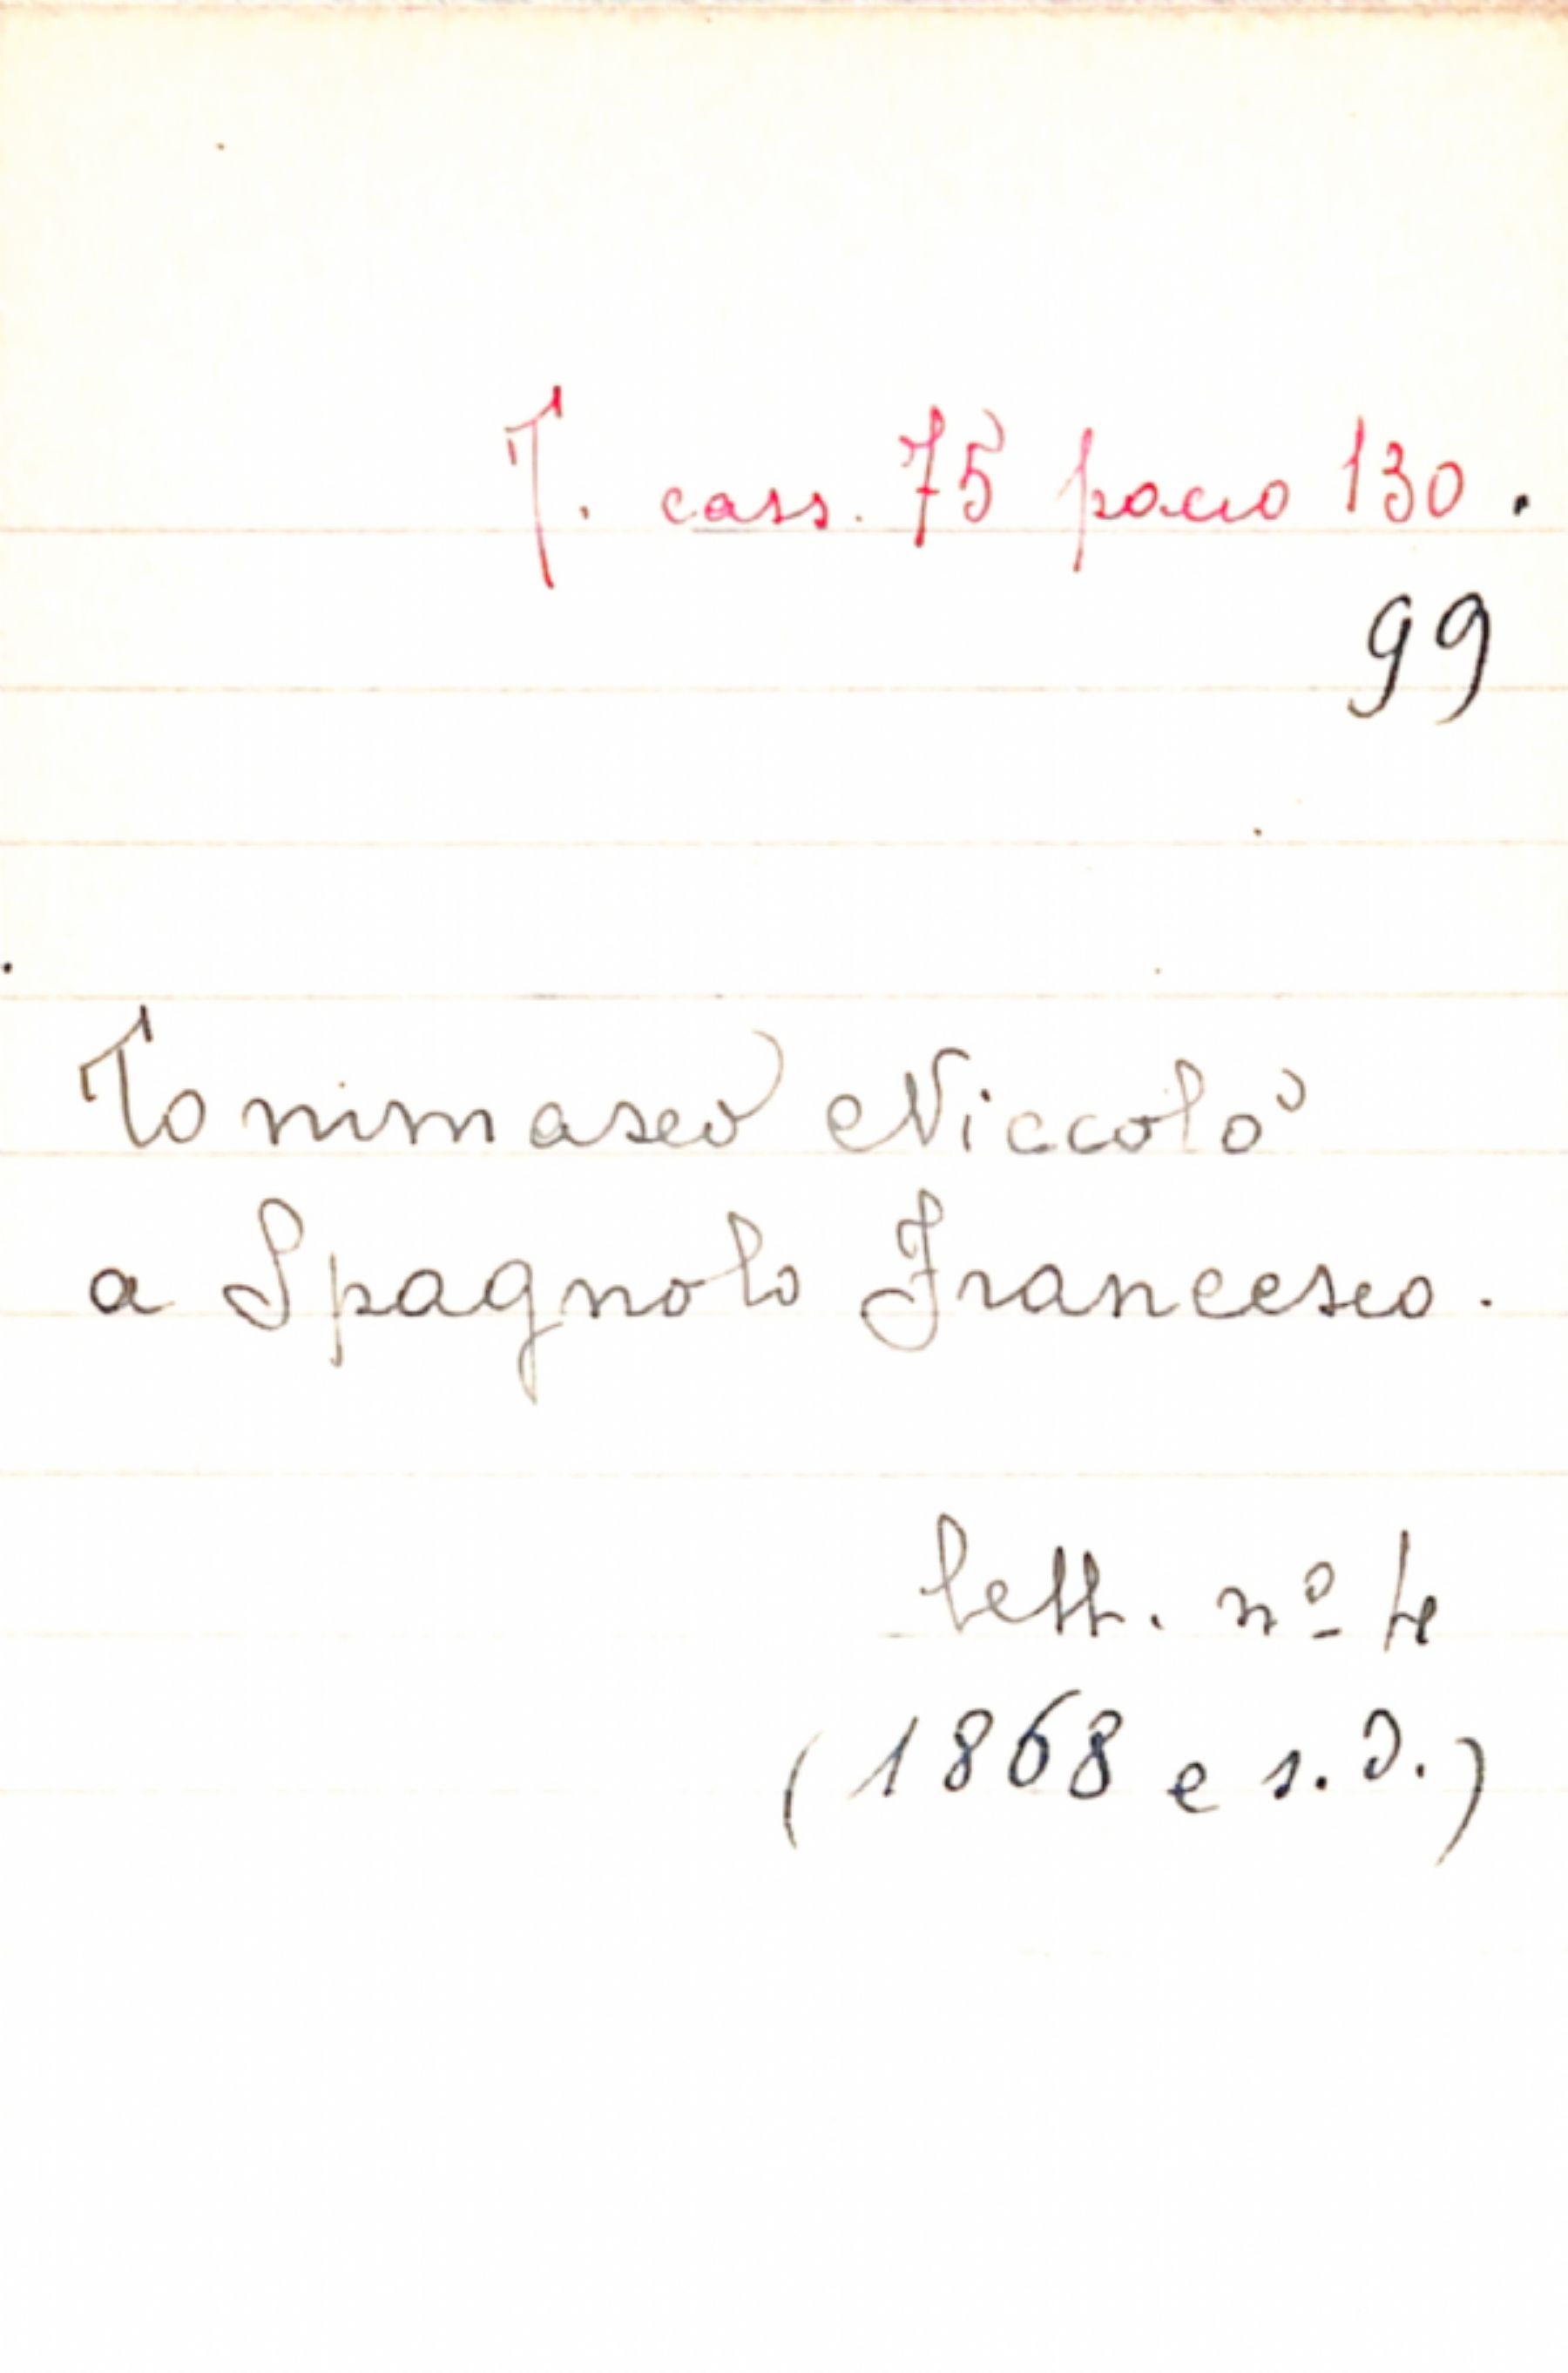 T. cass. 75 pacco 130.
99
Tommaseo Niccolò
a Spagnolo Francesco.
lett. nº 4
(1868 e s.d.)